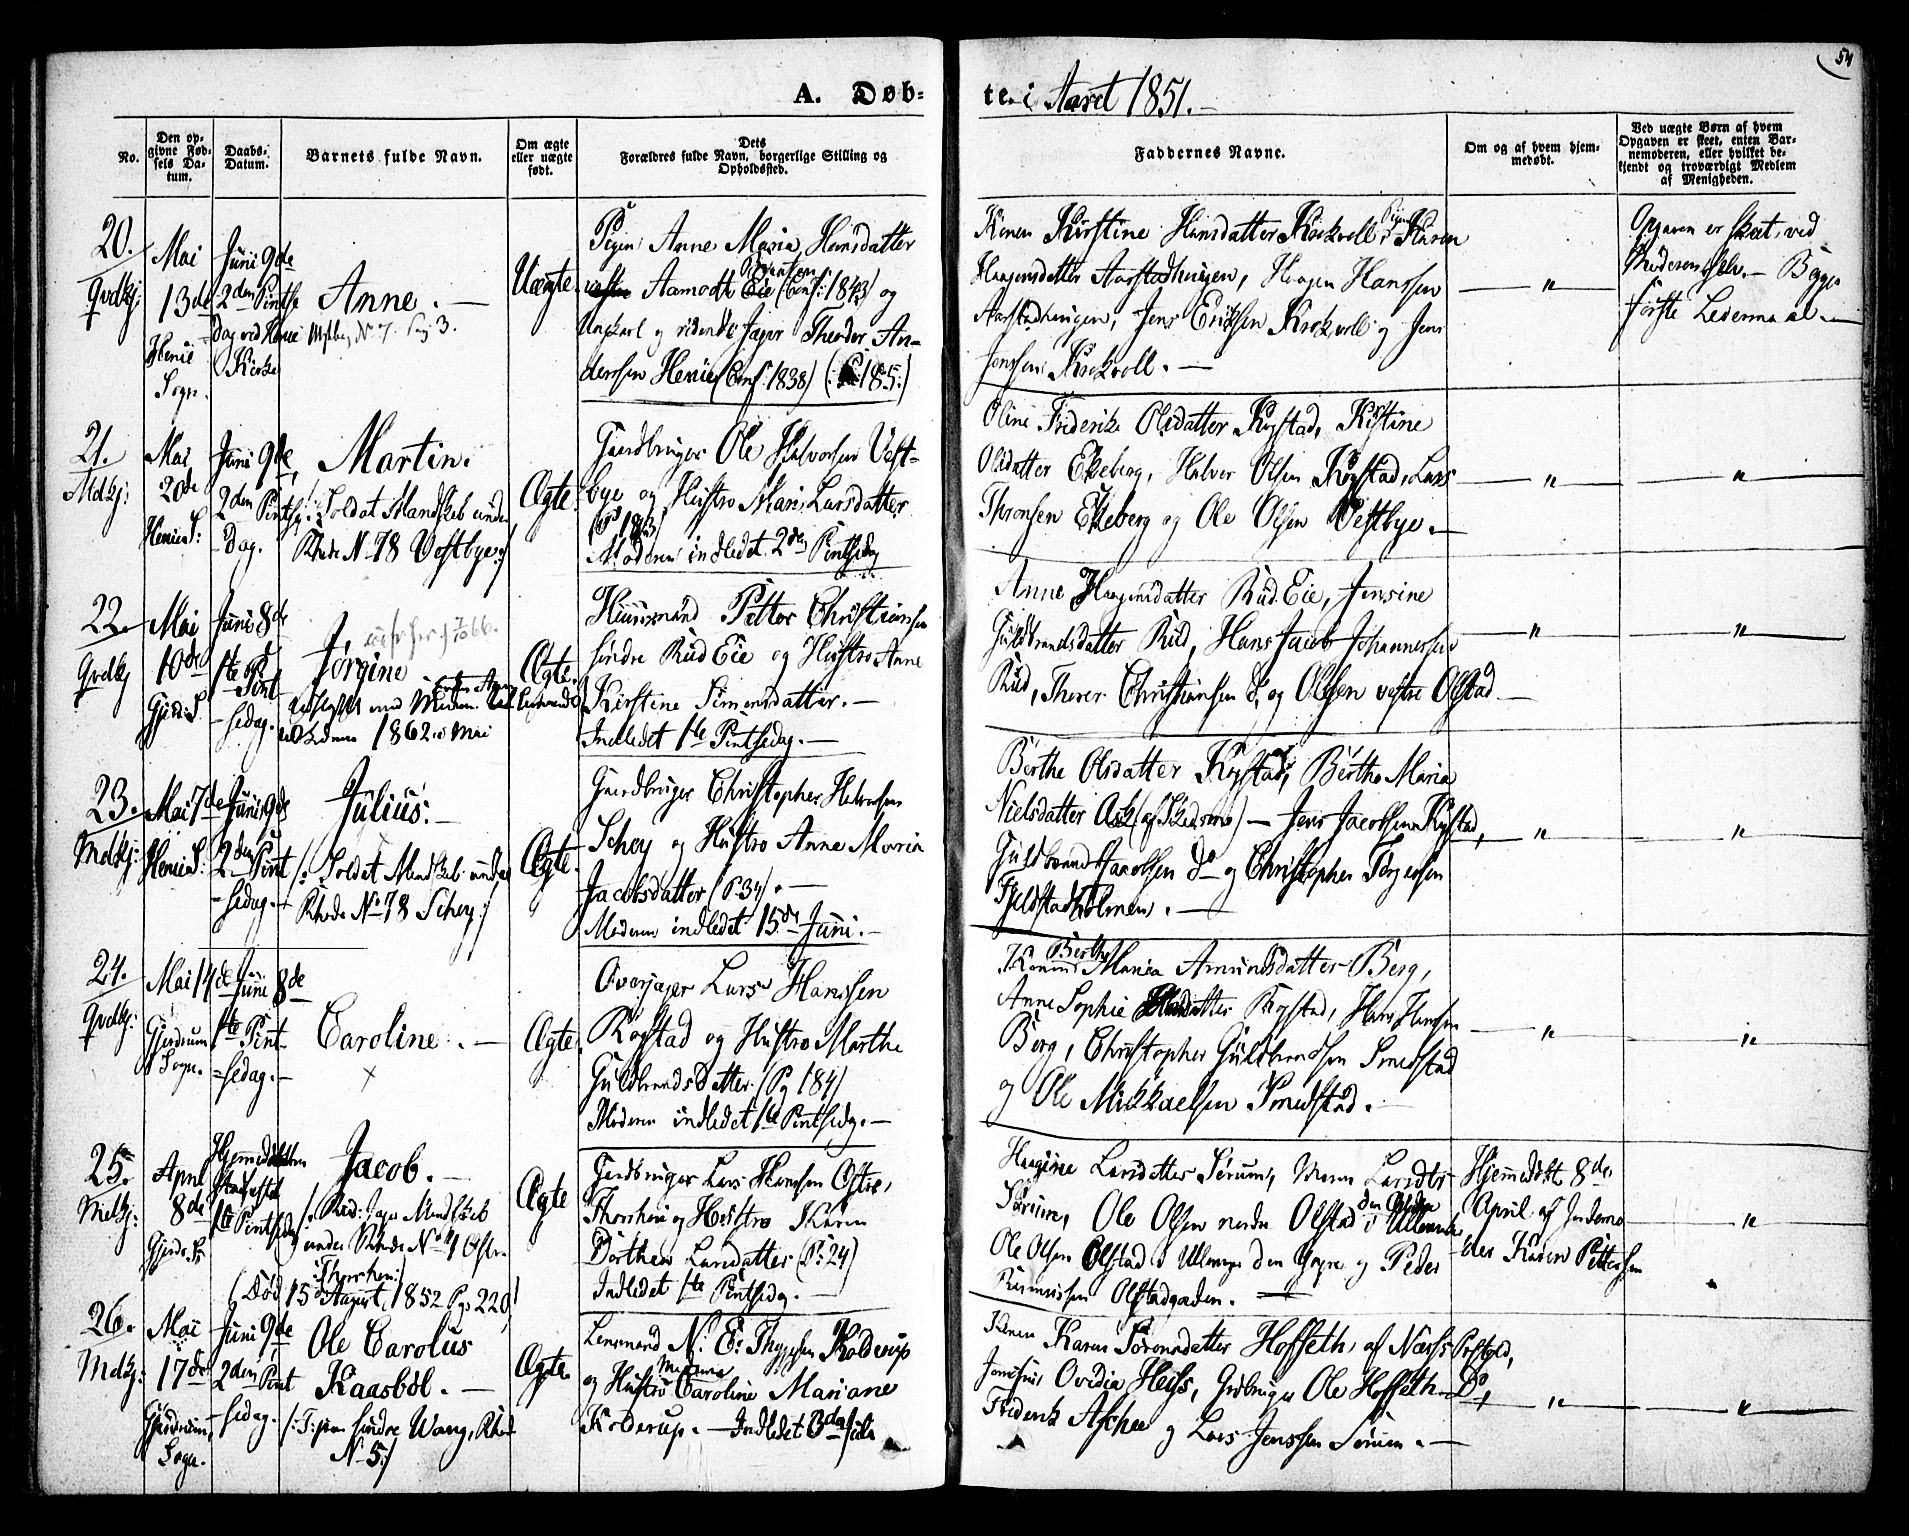 A. Døb-
te i Aaret 1851.
54
No.
Den op-
givne Fød-
sels Da-
tum.
Daabs-
Datum.
Barnets fulde Navn.
Om ægte
eller uægte
født.
Dets
Forældres fulde Navn, borgerlige Stilling og
Opholdssted.
Faddernes Navne.
Om og af hvem hjem-
medøbt.
Ved uægte Børn af hvem
Opgaven er skeet, enten Bar-
nemoderen, eller hvilket be-
kjendt og troværdigt Medlem
af Menigheden.
20.
Qvdkj:
Mai
13de
Sogn.
Juni 9de
2den Pintse
Dag ved
Kirke
Anne. —
Uægte.
Pigen Anne Maria Hansdatter
Aamodt Eie (Conf: 1843) og
Ungkarl og ridende Jæger Theodor An-
derssen Henie (Conf: 1838) (: 185:)
Konen Kirstine Hansdatter Krokvoll, Pige Karen
Haagensdatter Aarstadhaugen, Haagen Hanssen
Aarstadhaugen, Jens Eriksen Krokvoll og Jens
Jenssen Krokvoll. —
"
Opgaven er skeet ved
Moderen selv. — Begges
første Leiermaal. —
21.
Mdkj:
Mai
20de
Henie S:
Juni 9de
2den Pintse-
Dag.
Martin.
/: Soldat Mandskab under
Rhode No 78 Vestbye:/
Ægte.
Gaardbruger Ole Halvorsen Vest-
bye og Hustro Mari Larsdatter
Moderen indledet 2den Pintsedag
Oline Frederike Olsdatter Kogstad, Kistine
Olsdatter Ekeberg, Halver Olsen Kogstad, Lars
Thronsen Ekeberg og Ole Olsen Vestbye. —
"
"
22.
Qvdkj
Mai
10de
Gjerd. S.
Juni 8de
1ste Pint-
sedag.
Jørgine
1862 Mai
Ægte.
Huusmand Petter Christiansen
søndre Rud Eie og Hustro Anne
Kirstine Simensdatter. —
Indledet 1ste Pintsedag. —
Anne Haagensdatter Rud Eie, Jensine
Guldbrandsdatter Rud, Hans Jacob Johannessen
Rud, Thorer Christiansen og Olssen vestre Olstad —
"
"
23.
Mdkj:
Mai 7de
Henie S:
Juni 9de
2den Pint
sedag. —
Julius. —
/: Soldat Mandskab under
Rhode No 78 Schøy:/
Ægte.
Gaardbruger Christopher Halvorsen
Schøy og Hustro Anne Maria
Jacobsdatter (P. 34). —
Moderen indledet 15de Juni. —
Berthe Olsdatter Kogstad, Berthe Maria
Nielsdatter Ask (af Skedsmo) — Jens Jacobsen Kogstad,
Guldbrand Jacobsen Do og Christopher Torgersen
Fjeldstadholmen. —
"
"
24.
Qvdkj:
Mai 14de
Gjerdrum
Sogn.
Juni 8de
1ste Pint-
sedag. —
Caroline. —
Ægte.
Overjæger Lars Hanssen
Kogstad og Hustro Marthe
Guldbrandsdatter (Pg 184)
Moderen indledet 1ste Pintsedag. —
Konen Berthe Maria Amundsdatter Berg,
Anne Sophie Kogstad, Hans Hansen
Berg, Christopher Guldbrandsen Smedstad
og Ole Mikkaelsen Smedstad. —
"
"
25.
Mdkj:
April
8de
Gjerdr. S
1ste Pintsedag
Jacob. —
/: Rid: Jæger Mandskab
under Rhode No 4 Østre
Thorshem:/
(Død 15 August 1852 Pg. 220)
Ægte
Gaardbruger Lars Hansen Østre,
Thorshem og Hustro Karen
Dorthea Larsdatter (P: 24)
Indledet 1ste Pintsedag. —
Haagine Larsdatter Sørum, Maren Larsdtr
Sørum, Ole Olsen nordre Olstad i Ullensak. den Ældre
Ole Olsen Olstad i Ullensager den Yngre og Peder
Rasmussen Olstadgaarden. —
Hjemmedøbt 8de
April af Jordemo-
der Karen Pettersen
"
26.
Mdkj:
Mai
17de
Gjerdrum
Sogn.
Juni 9de
2den Pint
sedag.
Ole Carolus
Kaasböl. —
søndre Wang, Rhod
No 5:/
Ægte.
Lensmand N: E: Kolderup
og Hustro Caroline Mariane
Kolderup. — Indledet
Konen Karen Sørensdatter Hoffseth, af Næss Præstegjeld,
Jomfrue Ovidia Heiss, Grdbruger Ole Hoffseth Do,
Frederik Aschee og Lars Jenssen Sörum. —
"
"